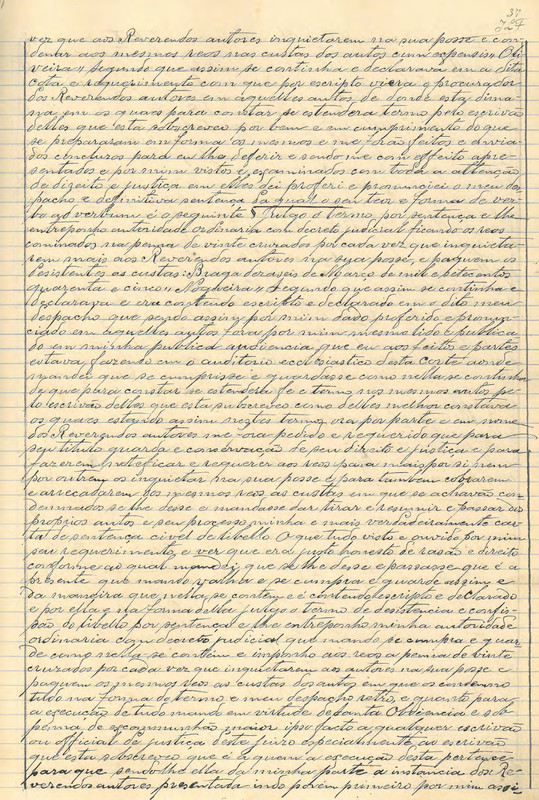 37
vez que aos Reverendos autores inquietarem na sua posse e con-
denar aos mesmos reos nas custas dos autos cum expensis. Oli-
veira" segundo que assim se continha e declarava em a dita
cota e requerimento com que por escripto viera o procurador
dos Reverendos autores em aquelles autos de donde esta dima-
na, em os quaes para constar se estendera termo pelo escrivão
delles que esta subscreveu por bem e em cumprimento do que
se prepararam em forma os mesmos e me forão feitos e envia-
dos conclusos para eu lhe deferir e sendo-me com effeito apre-
sentados e por mim vistos e examinados com toda a attenção
de direito e justiça em elles dei proferi e pronunciei o meu des-
pacho e definitiva sentença da qual o seu teor e forma de ver-
bo ad verbum é o seguinte Julgo o termo por sentença e lhe
entreponho autoridade ordinaria com decreto judicial ficando os reos
cominados na penna de vinte cruzados por cada vez que inquieta-
rem mais aos Reverendos autores na sua posse, e paguem os
desistentes as custas. Braga deraseis de Março de mil e setecentos
quarenta e cinco" Nogueira" Segundo que assim se continha e
declarava e era conteudo escripto e declarado em o dito meu
despacho que sendo assim por mim dado proferido e pronun-
ciado em aquelles autos fora por mim mesmo lido e publica-
do em minha publica audiencia que eu aos feitos e partes
estava fazendo em o auditorio ecclesiastico desta Corte aonde
mandei que se cumprisse e guardasse como nella se continha
de que para constar se estendera fe e termo nos mesmos autos pe-
lo escrivão delles que esta subscreveu como delles melhor constava
os quaes estando assim nestes termos ora por parte e em nome
dos Reverendos autores me fora pedido e requerido que para
seu titulo guarda e conservação de seu direito e justiça e para
fazerem notificar e requerer aos reos para mais por si nem
por outrem os inquietar na sua posse e para tambem cobrarem
e arrecadarem dos mesmos reos as custas em que se achavão con-
demnados se lhe desse e mandasse dar tirar e resumir e passar dos
proprios autos e seu processo minha e mais verdadeiramente car-
ta de sentença civel de libello O que tudo visto e ouvido por mim
seu requerimento, e ver que era justo honesto de rasão e direito
conforme ao qual mandei que se lhe desse e passasse que é a
presente que mando valha e se cumpra e guarde assim e
da maneira que nella se contem e é conteudo escripto e declarado
e por ella e na forma della julgo o termo de desistencia e confis-
são do libello por sentença e lhe entreponho minha autoridade
ordinaria com decreto judicial que mando se cumpra e guar-
de como nella se contem e imponho aos reos a penna de vinte
cruzados por cada vez que inquietarem aos autores na sua posse e
paguem os mesmos reos as custas dos autos em que os condemno
tudo na forma do termo e meu despacho retro, e quanto para
a execução de tudo mando em virtude de Santa Obdiencia e sob
penna de excommunhão maior ipso facto a qualquer escrivão
ou official de justiça deste juizo especialmente ao escrivão
que esta subscreveu que é a quem a execução desta pertence
para que sendo-lhe ella da minha parte a instancia dos Re-
verendos autores presentada indo porem primeiro por mim assi-